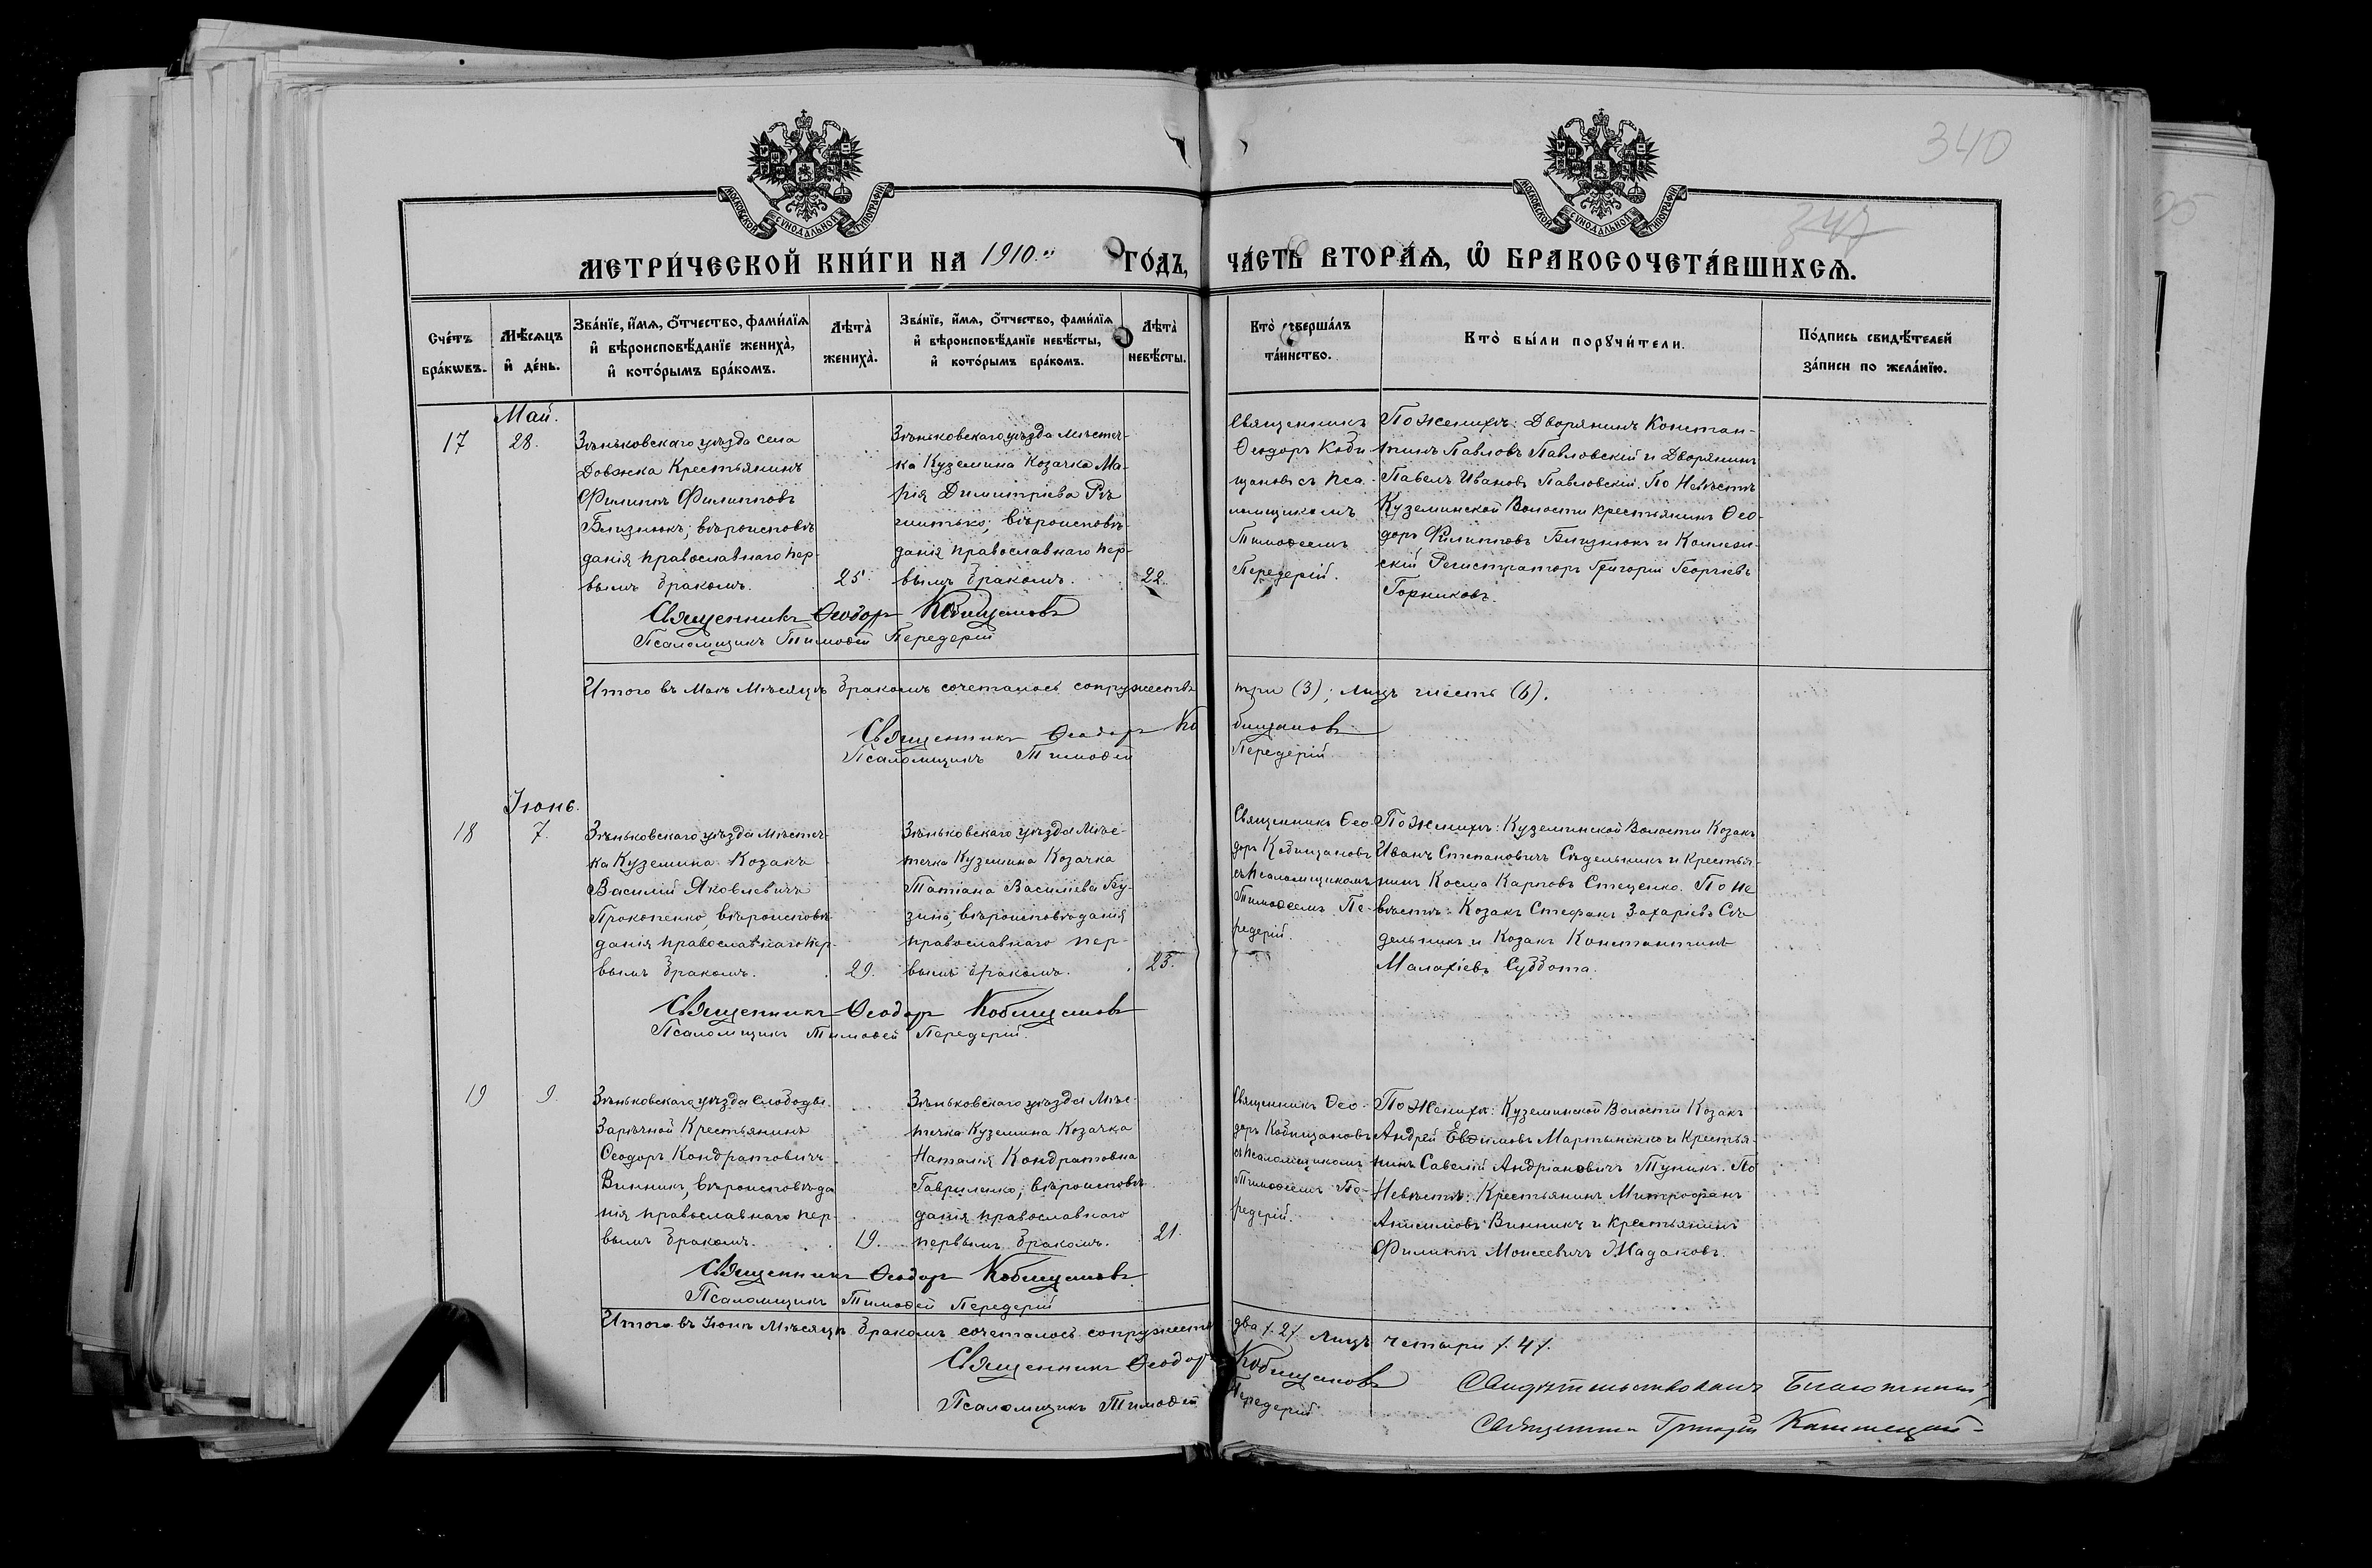 340
347
МОСКОВСКОЙ СѴНОДАЛЬНОЙ ТИПОГРАФІИ
МОСКОВСКОЙ СѴНОДАЛЬНОЙ ТИПОГРАФІИ
МЕТРИ́ЧЕСКОЙ КНИ́ГИ НА 1910. ГО́ДЪ,
ЧА́СТЬ ВТОРА́Ѧ, Ѽ БРАКОСОЧЕТА́ВШИХСѦ.
Сче́тъ бра́кωвъ.
Мѣ́сѧцъ и҆ де́нь.
Зва́нїе, и҆́мѧ, ѻ҆́тчество, фами́лїѧ
и҆ вѣроисповѣ́данїе жениха̀,
и҆ кото́рымъ бра́комъ.
Лѣта̀ жениха̀.
Зва́нїе, и҆́мѧ, ѻ҆́тчество, фами́лїѧ
и҆ вѣроисповѣ́данїе невѣ́сты,
и҆ кото́рымъ бра́комъ.
Лѣта̀ невѣ́сты.
Кто̀ соверша́лъ
та́инство.
Кто̀ бы́ли порꙋчи́тели.
По́дпись свидѣ́телей
за́писи по жела́нїю.
Май.
17
28.
Зѣньковскаго уѣзда села
Довжка Крестьянинъ
Филиппъ Филипповъ
Близнюкъ; вѣроисповѣ
данія православнаго пер-
вымъ бракомъ.
25.
Зѣньковскаго уѣзда мѣстеч-
ка Куземина Козачка Ма-
рія Димитріева Рѣ
шитько; вѣроисповѣ
данія православнаго пер-
вымъ бракомъ.
22.
Священникъ
Ѳеодоръ Коби
щановъ съ пса
ломщикомъ
Тимоѳеемъ
Передерій.
По Женихѣ: Дворянинъ Констан-
тинъ Павловъ Павловскій и Дворянинъ
Павелъ Ивановъ Павловскій. По Невѣстѣ
Куземинской Волости крестьянинъ Ѳео-
доръ Филипповъ Близнюкъ и Коллеж-
скій Регистраторъ Григорій Георгіевъ
Горниковъ.
Священникъ Ѳеодоръ Кобищановъ
Псаломщикъ Тимоѳей Передерій
Итого въ Маѣ Мѣсяцѣ бракомъ сочеталось супружествъ три (3); лицъ шесть (6).
Священникъ Ѳеодоръ Кобищановъ
Псаломщикъ Тимоѳей Передерій
Іюнь.
18
7.
Зѣньковскаго уѣзда Мѣстеч-
ка Куземина Козакъ
Василій Яковлевичъ
Прокопенко, вѣроисповѣ
данія православнаго пер-
вымъ бракомъ.
29.
Зѣньковскаго уѣзда Мѣс-
течка Куземина Козачка
Татіана Василіева Гу-
зина, вѣроисповѣданія
православнаго пер-
вымъ бракомъ.
23.
Священникъ Ѳео-
доръ Кобищановъ
съ Псаломщикомъ
Тимоѳеемъ Пе-
редерій.
По Женихѣ: Куземинской Волости Козакъ
Иванъ Степановичъ Сѣдельникъ и Крестья-
нинъ Косма Карповъ Стеценко. По Не
вѣстѣ: Козакъ Стефанъ Захаріевъ Сѣ
дельникъ и Козакъ Константинъ
Малахіевъ Суббота.
Священникъ Ѳеодоръ Кобищановъ
Псаломщикъ Тимоѳей Передерій.
19
9.
Зѣньковскаго уѣзда Слободы
Зарѣчной Крестьянинъ
Ѳеодоръ Кондратовичъ
Винникъ, вѣроисповѣда
нія православнаго пер-
вымъ бракомъ.
19.
Зѣньковскаго уѣзда Мѣс-
течка Куземина Козачка
Наталія Кондратовна
Гавриленко; вѣроисповѣ
данія православнаго
первымъ бракомъ.
21.
Священникъ Ѳео-
доръ Кобищановъ
съ Псаломщикомъ
Тимоѳеемъ Пе-
редерій.
По Женихѣ: Куземинской Волости Козакъ
Андрей Евѳимовъ Мартыненко и Крестья-
нинъ Савелій Андріановичъ Тупикъ. По
Невѣстѣ: Крестьянинъ Митрофанъ
Анисимовъ Винникъ и крестьянинъ
Филиппъ Моисеевичъ Жадановъ.
Священникъ Ѳеодоръ Кобищановъ
Псаломщикъ Тимоѳей Передерій
Итого въ Іюнѣ Мѣсяцѣ бракомъ сочеталось супружествъ два /.2/. Лицъ четыри /.4/.
Священникъ Ѳеодоръ Кобищановъ
Псаломщикъ Тимоѳей Передерій.
Свидѣтельствовалъ Благочинный,
Священникъ Григорій